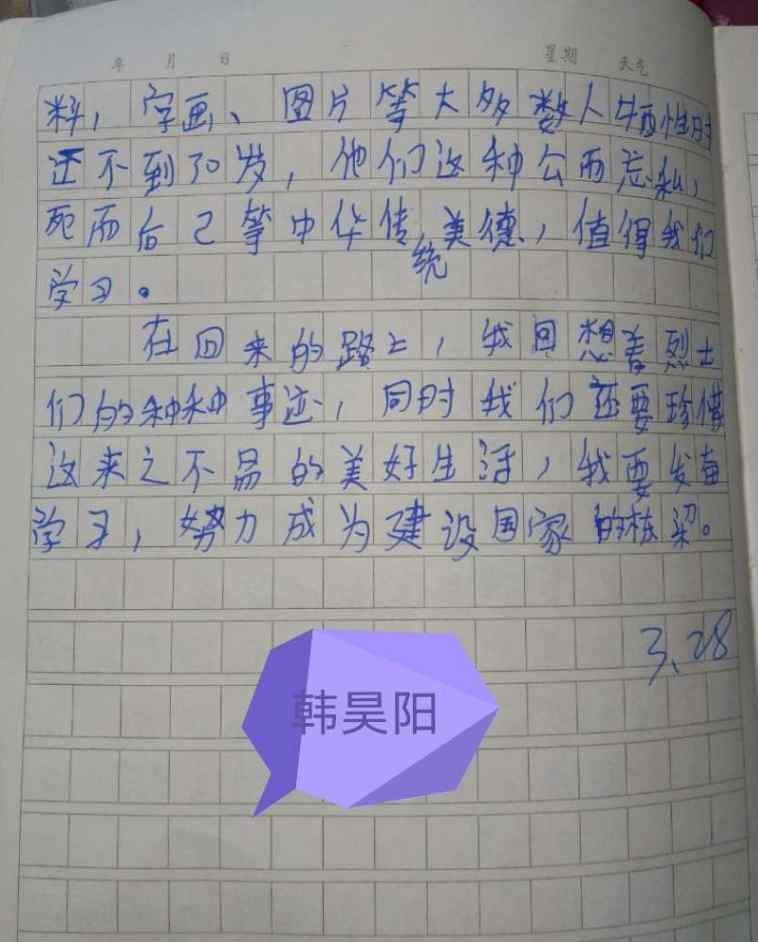 年 月 日 星期 天气
料，字画、图片等大多数人牺牲时
还不到30岁，他们这种公而忘私，
死而后己等中华传统美德，值得我们
学习。
在回来的路上，我回想着烈士
们的种种事迹，同时我们还要珍惜
这来之不易的美好生活，我要发奋
学习，努力成为建设国家的栋梁。
3.28
韩昊阳